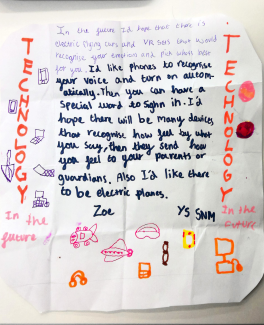 In the future I'd hope that there is
electric flying cars and VR sets that would
recognise your emotions and pick whats best
for you I'd like phones to recognise
your voice and turn on autom-
atically. Then you can have a
special word to sighn in. I'd
hope there will be many devices
that recognise how feel by what
you say, then they send how
you feel to your parents or
guardians. Also I'd like there
to be electric planes.
Zoe Y5 SNM
TECHNOLOGY
TECHNOLOGY
In the
future
In the
future